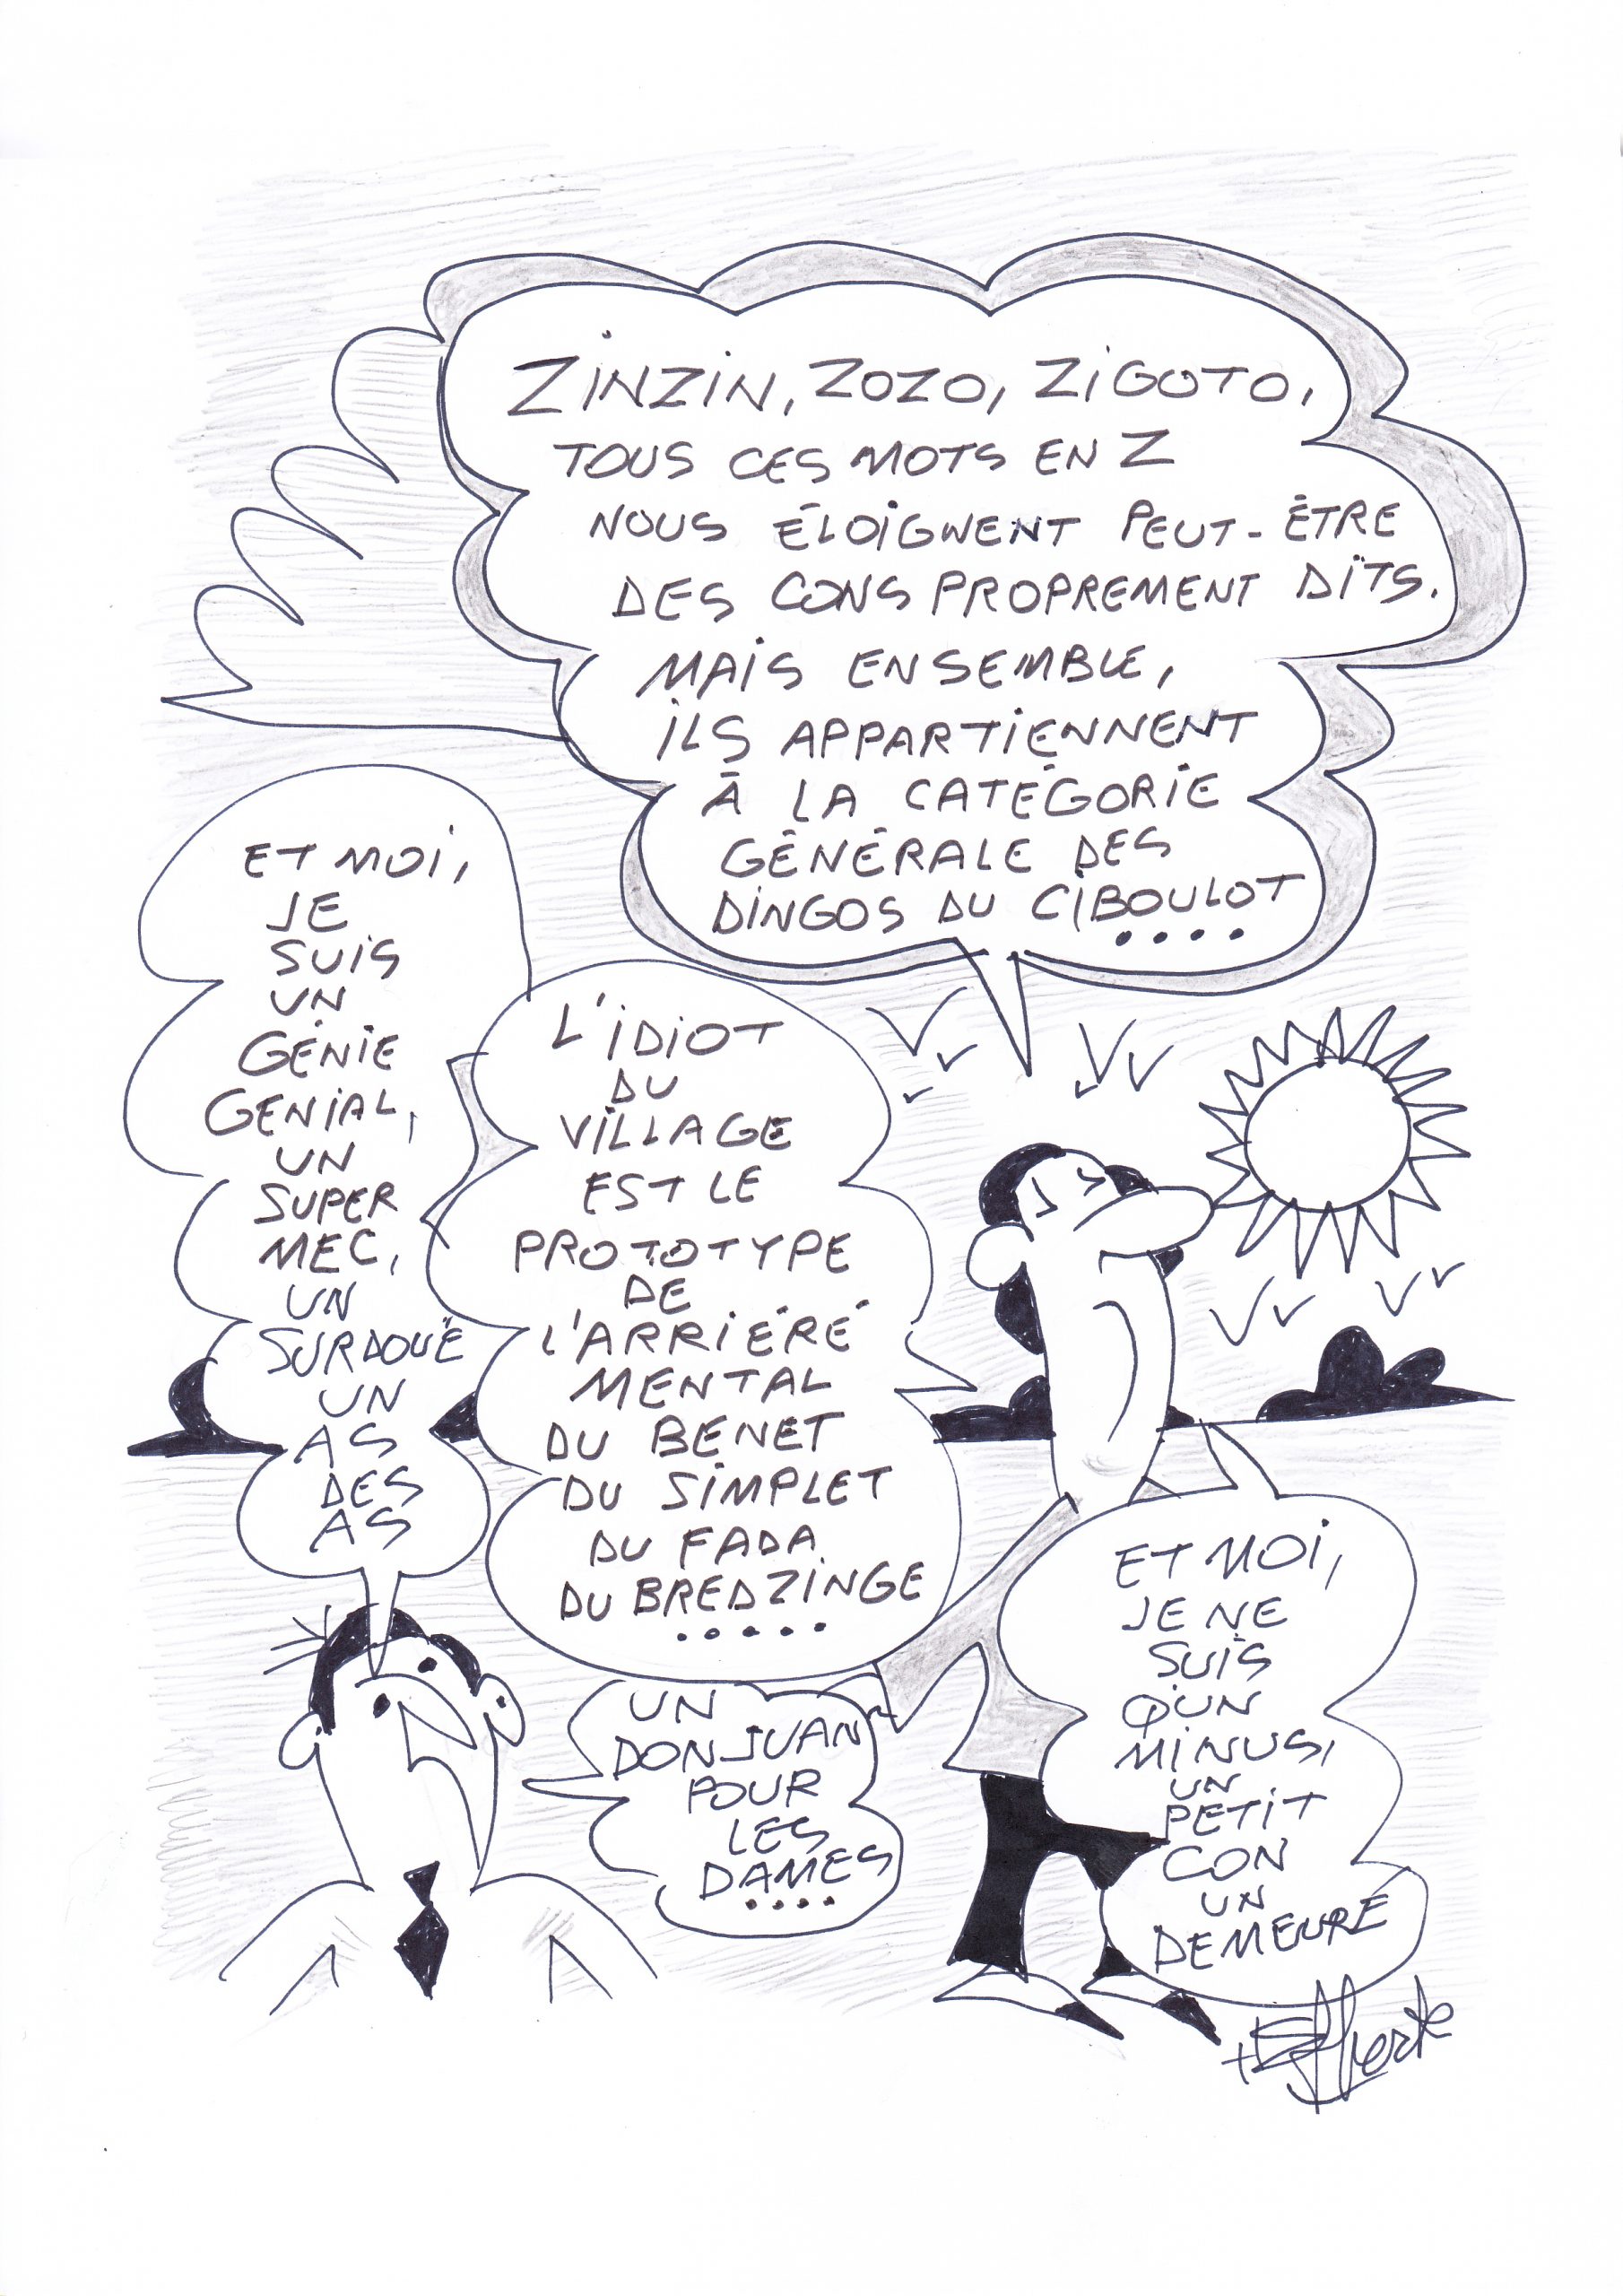 ZINZIN, ZOZO, ZIGOTO,
TOUS CES MOTS EN Z
NOUS ÉLOIGNENT PEUT-ÊTRE
DES CONS PROPREMENT DITS.
MAIS ENSEMBLE,
ILS APPARTIENNENT
À LA CATÉGORIE
GÉNÉRALE DES
DINGOS DU CIBOULOT
....
ET MOI,
JE
SUIS
UN
GÉNIE
GENIAL,
UN
SUPER
MEC,
UN
SURDOUÉ
UN
AS
DES
AS
L'IDIOT
DU
VILLAGE
EST LE
PROTOTYPE
DE
L'ARRIÉRÉ
MENTAL
DU BENET
DU SIMPLET
DU FADA
DU BREDZINGE
.....
UN
DON JUAN
POUR
LES
DAMES
....
ET MOI,
JE NE
SUIS
QU'UN
MINUS,
UN
PETIT
CON
UN
DEMEURE